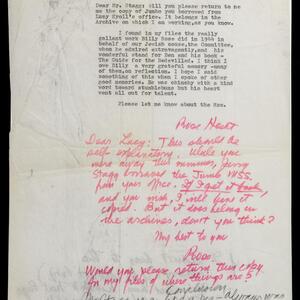 Dear Mr. Stagg: Will you please return to me
me the copy of Jumbo you borrowed from
Lucy Kroll's office. It belongs in the
Archive on which I am working, as you know.
I found in my files the really
gallant work Billy Rose did in 1944 in
behalf of our Jewish cause, the Committee,
whom he admired extravagantly, and his
wonderful stand for Ben and his book on
The Guide for the Bedevilled. I think I
owe Billy a very grateful memory -many
of them, on reflection. I hope I said
something of this when I spoke of other
good memories. He was chinchy with a kind
word toward stumblebums but his heart
went all out for talent.
Please let me know about the Mss.
Rose Hecht
Dear Lucy: This should be
self explanatory. While you
were away this summer, Jerry
Stagg borrowed the Jumbo MSS.
from your office. If I get it back,
and you wish, I will have it
copied. But it does belong in
the archives, don't you think?
My best to you
Rose
Would you please return this copy
for my files of where things are?